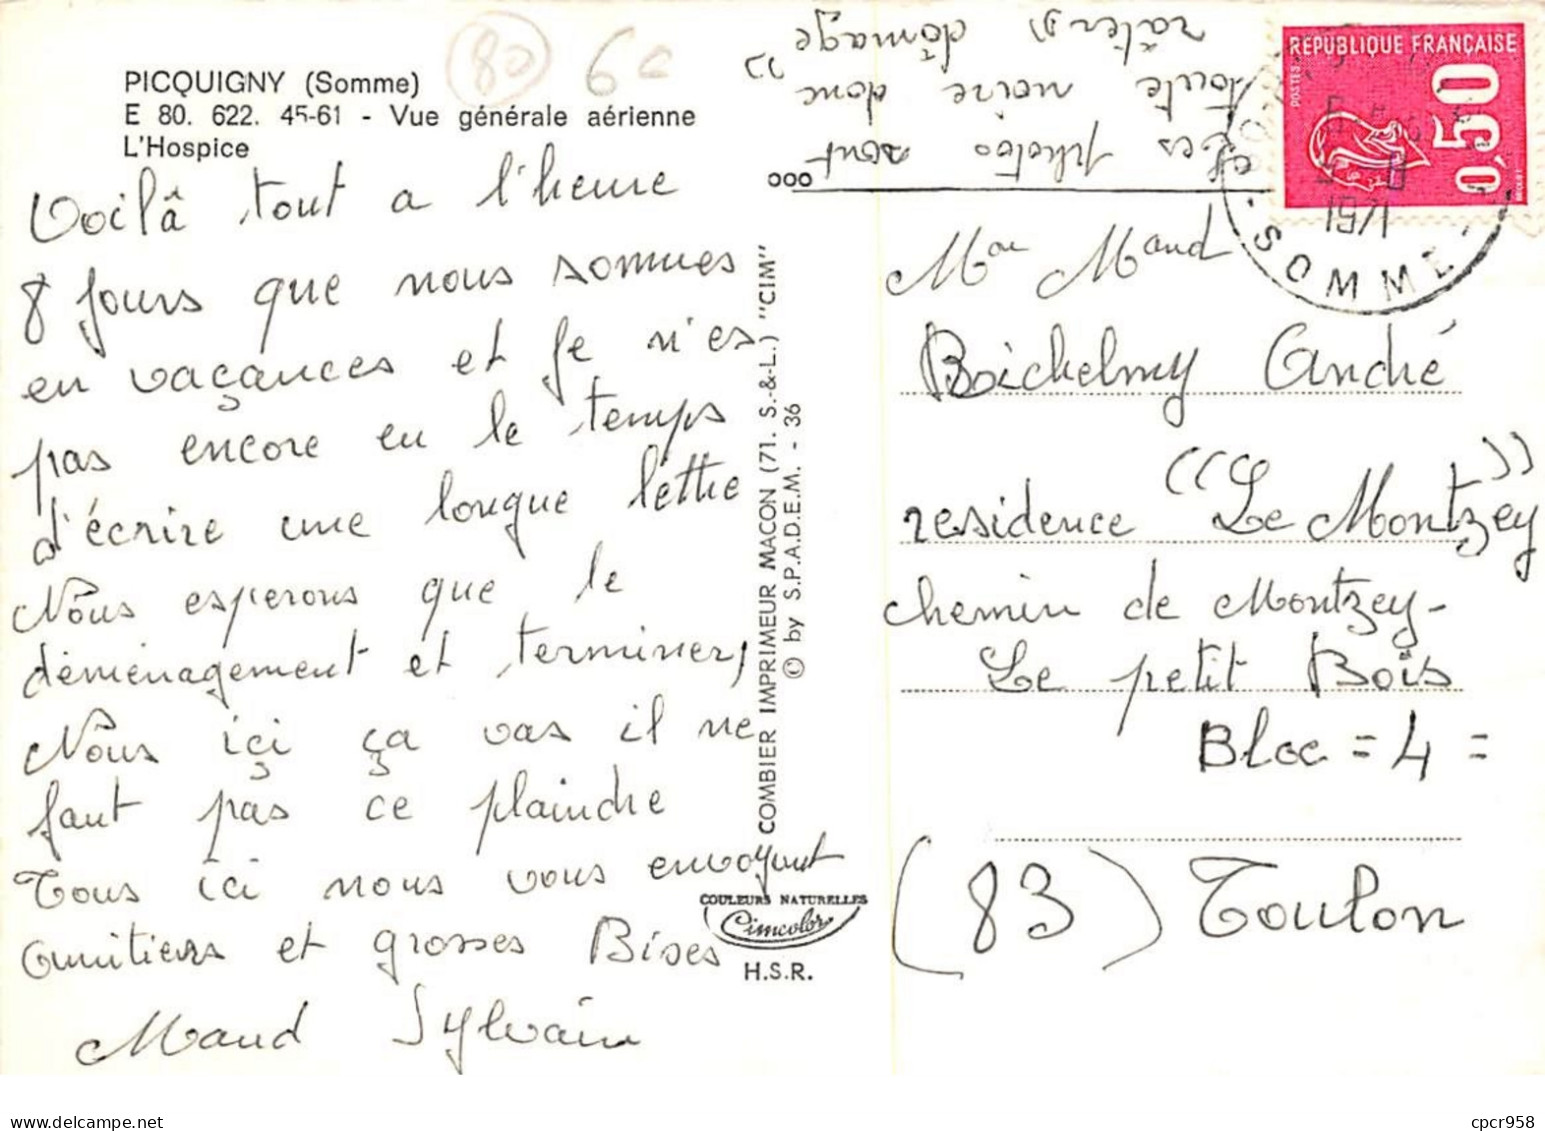 PICQUIGNY (Somme)
E 80. 622. 45-61 - Vue générale aérienne
L'Hospice
80
60
Voilâ tout a l'heure
8 jours que nous sommes
en vaçançes et je n'es
pas encore eu le temps
d'écrire une longue lettre
Nous esperons que le
déménagement et terminer,
Nous içi ça vas il ne
faut pas ce plaindre
Tous ici nous vous envoyont
amitiers et grosses Bises
Maud Sylvain
COMBIER IMPRIMEUR MACON (71. S.-&-L.) "CIM"
© by S.P.A.D.E.M. - 36
COULEURS NATURELLES
Cimcolor
H.S.R.
Les photos sont
toute noire donc "
râter" dômage
RÉPUBLIQUE FRANÇAISE
POSTES
0,50
SOMME
Maud
Boichelmy André
residence "Le Montzey"
chemin de Montzey-
Le petit Bois
Bloc = 4 =
(83) Toulon
cpcr958